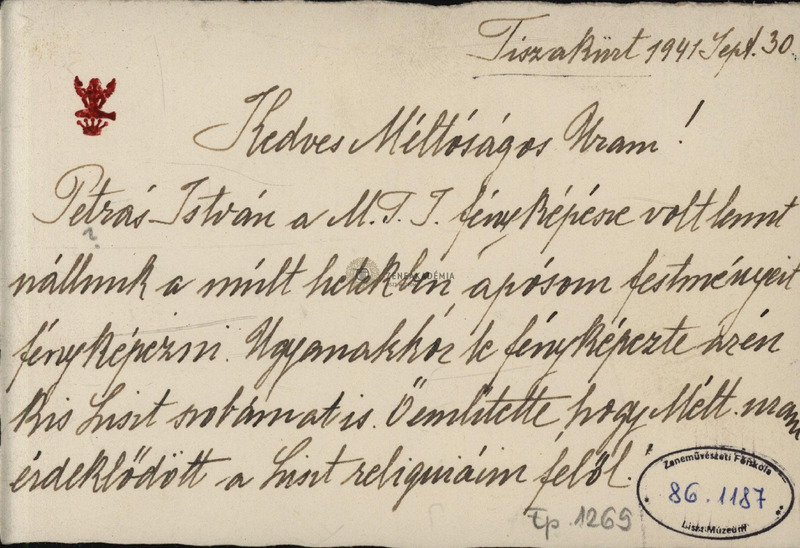 Tiszakürt 1941 Sept. 30.
Kedves Méltóságos Uram!
Petrás István a M.T.I. fényképésze volt lennt
?
nállunk a múlt hetekben, apósom festményeit
ZENEAKADÉMIA
fényképezni. Ugyanakkor le fényképezte az én
kis Liszt szobámat is. Ő említette, hogy Mélt. uram
érdeklődött a Liszt reliquiáim felöl.
Zeneművészeti Főiskola
86.1187
Liszt Múzeum
Ep. 1269